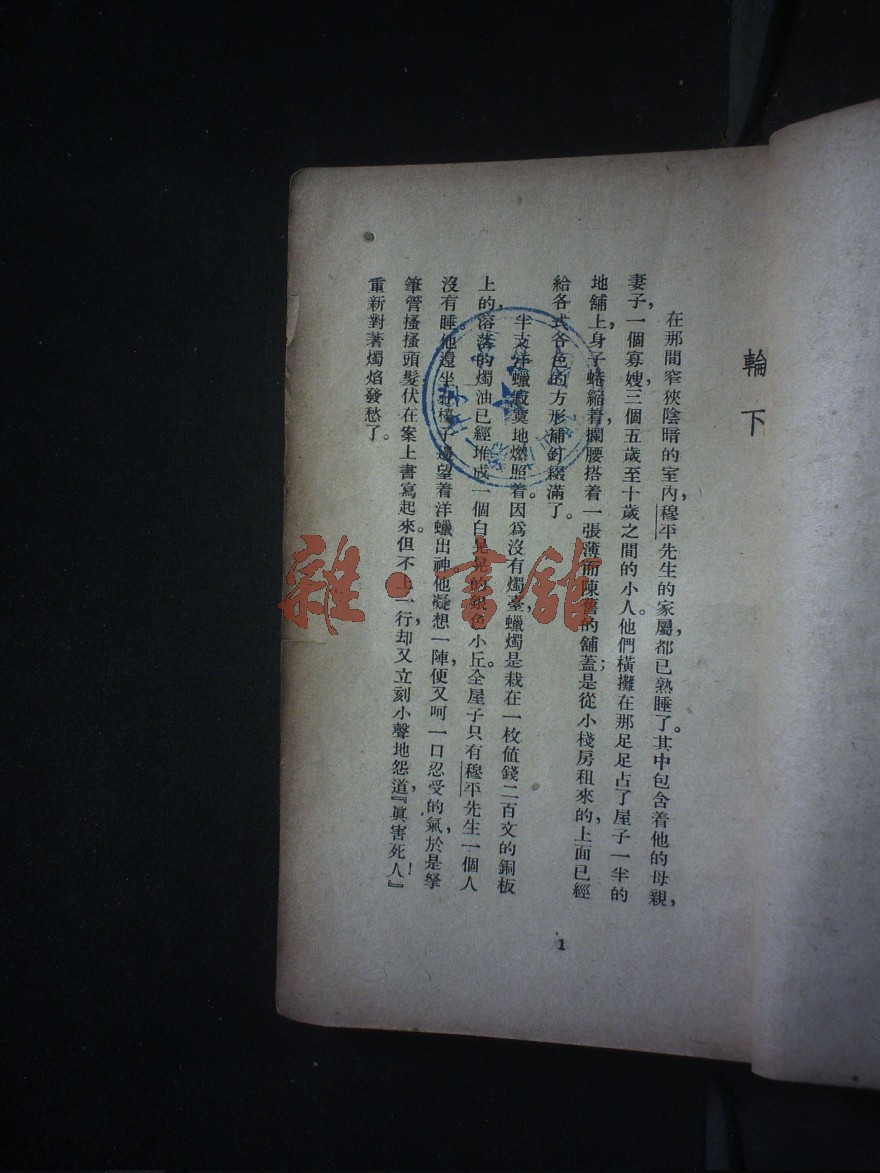 輪下
在那間窄狹陰暗的室內，穆平先生的家屬，都已熟睡了。其中包含着他的母親，
妻子，一個寡嫂，三個五歲至十歲之間的小人。他們橫攤在那足足占了屋子一半的
地舖上，身子蜷縮着，攔腰搭着一張薄而陳舊的舖蓋；是從小棧房租來的，上面已經
給各式各色的方形補釘綴滿了。
半支洋蠟寂寞地燃照着。因爲沒有燭臺，蠟燭是栽在一枚值錢二百文的銅板
上的，溶落的燭油已經堆成一個白晃晃的銀色小丘。全屋子只有穆平先生一個人
沒有睡。他還坐在檯子邊望着洋蠟出神。他凝想一陣，便又呵一口忍受的氣，於是拏
筆管搔搔頭髮，伏在案上書寫起來。但不上一行，却又立刻小聲地怨道，『眞害死人！』
重新對著燭焰發愁了。
1
雜·書館